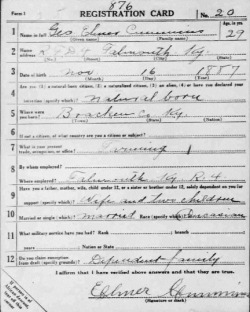 Form 1
876
REGISTRATION CARD
No. 20
1 Name in full Geo Elmer Cummins
(Given name) (Family name)
Age, in yrs.
29
2 Home address R.F.D. Falmouth Ky.
3 Date of birth Nov 16 1887
(Month) (Day) (Year)
4 Are you (1) a natural-born citizen, (2) a naturalized citizen, (3) an alien, (4) or have you declared your
intention (specify which)? Natural born
5 Where were you born? Bracken Co Ky.
6 If not a citizen, of what country are you a citizen or subject?
7 What is your present trade, occupation, or office? Farming
8 By whom employed?
Where employed? Falmouth Ky R.4
9 Have you a father, mother, wife, child under 12, or a sister or brother under 12, solely dependent on you for
support (specify which)? Wife and two children
10 Married or single (which)? Married Race (specify which)? Caucasian
11 What military service have you had? Rank ; branch
years ; Nation or State
12 Do you claim exemption from draft (specify grounds)? Dependent family
I affirm that I have verified above answers and that they are true.
Elmer Cummins
(Signature or mark)